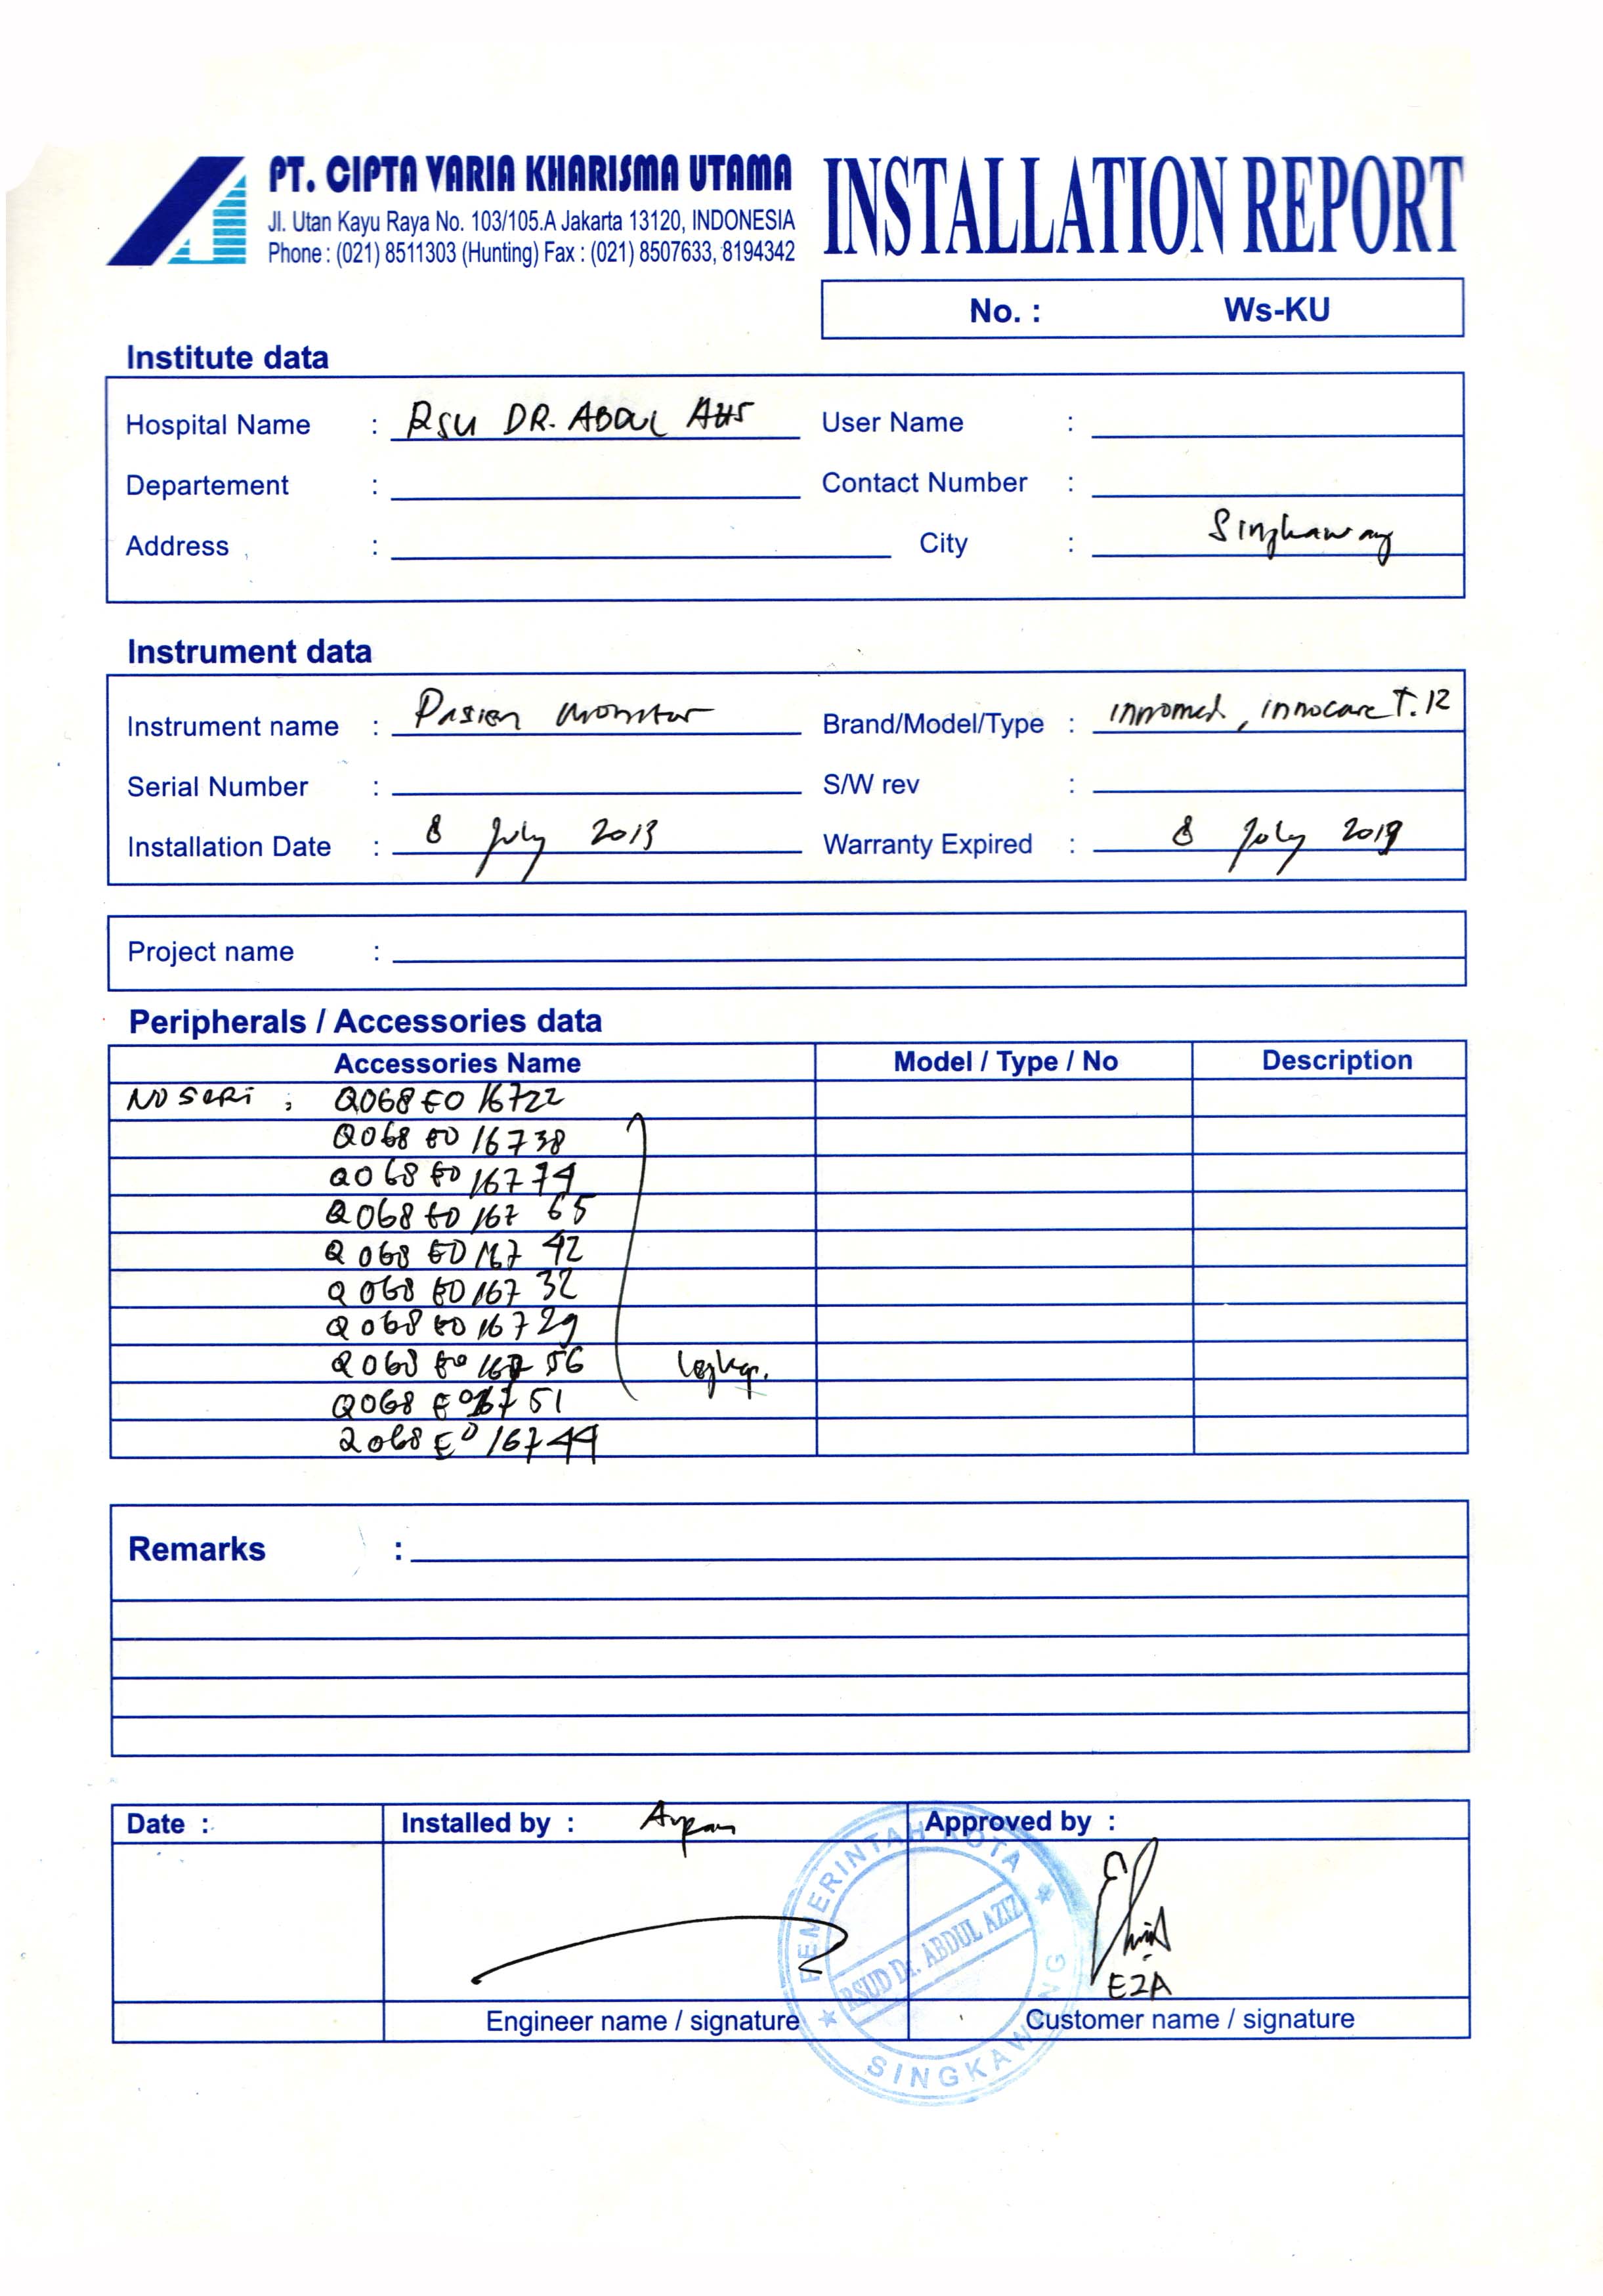 PT. CIPTA VARIA KHARISMA UTAMA
Jl. Utan Kayu Raya No. 103/105.A Jakarta 13120, INDONESIA
Phone : (021) 8511303 (Hunting) Fax : (021) 8507633, 8194342
INSTALLATION REPORT
No. : Ws-KU
Institute data
Hospital Name : RSU DR. ABDUL
User Name :
Departement :
Contact Number :
Address :
City : Singkawang
Instrument data
Instrument name : Pasien Monitor
Brand/Model/Type : innomed, innocare T. 12
Serial Number :
S/W rev :
Installation Date : 8 July 2013
Warranty Expired : 8 July
Project name :
Peripherals / Accessories data
Accessories Name Model / Type / No Description
NO SERI : Q068 E0 16722
Q068 E0 16738
Q068 E0 16774
Q068 E0 167 65
Q068 E0 167 42
Q068 E0 167 32
Q068 E0 16729
Q068 E0 167 56
Q068 E0 167 51
Q068 E0 16744
Remarks :
Date :
Installed by :
Approved by :
PEMERINTAH KOTA
RSUD Dr. ABDUL AZIZ
SINGKAWANG
EZA
Engineer name / signature
Customer name / signature